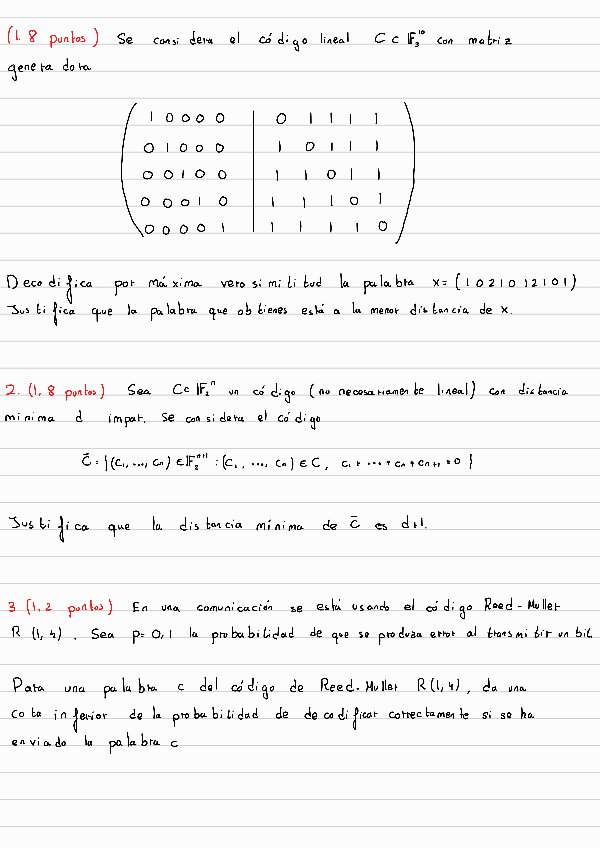 (1.8 puntos) Se considera el código lineal C ⊂ 𝔽₃¹⁰ con matriz
generadora
1 0 0 0 0 | 0 1 1 1 1
0 1 0 0 0 | 1 0 1 1 1
0 0 1 0 0 | 1 1 0 1 1
0 0 0 1 0 | 1 1 1 0 1
0 0 0 0 1 | 1 1 1 1 0
Decodifica por máxima verosimilitud la palabra x = (1 0 2 1 0 1 2 1 0 1)
Justifica que la palabra que obtienes está a la menor distancia de x.
2. (1,8 puntos) Sea C ⊂ 𝔽₂ⁿ un código (no necesariamente lineal) con distancia
mínima d impar. Se considera el código
C̄ = {(c₁, ..., cₙ) ∈ 𝔽₂ⁿ⁺¹ : (c₁, ..., cₙ) ∈ C, c₁ + ... + cₙ + cₙ₊₁ = 0}
Justifica que la distancia mínima de C̄ es d+1.
3 (1,2 puntos) En una comunicación se está usando el código Reed-Muller
R(1,4). Sea p=0,1 la probabilidad de que se produzca error al transmitir un bit.
Para una palabra c del código de Reed-Muller R(1,4), da una
cota inferior de la probabilidad de decodificar correctamente si se ha
enviado la palabra c